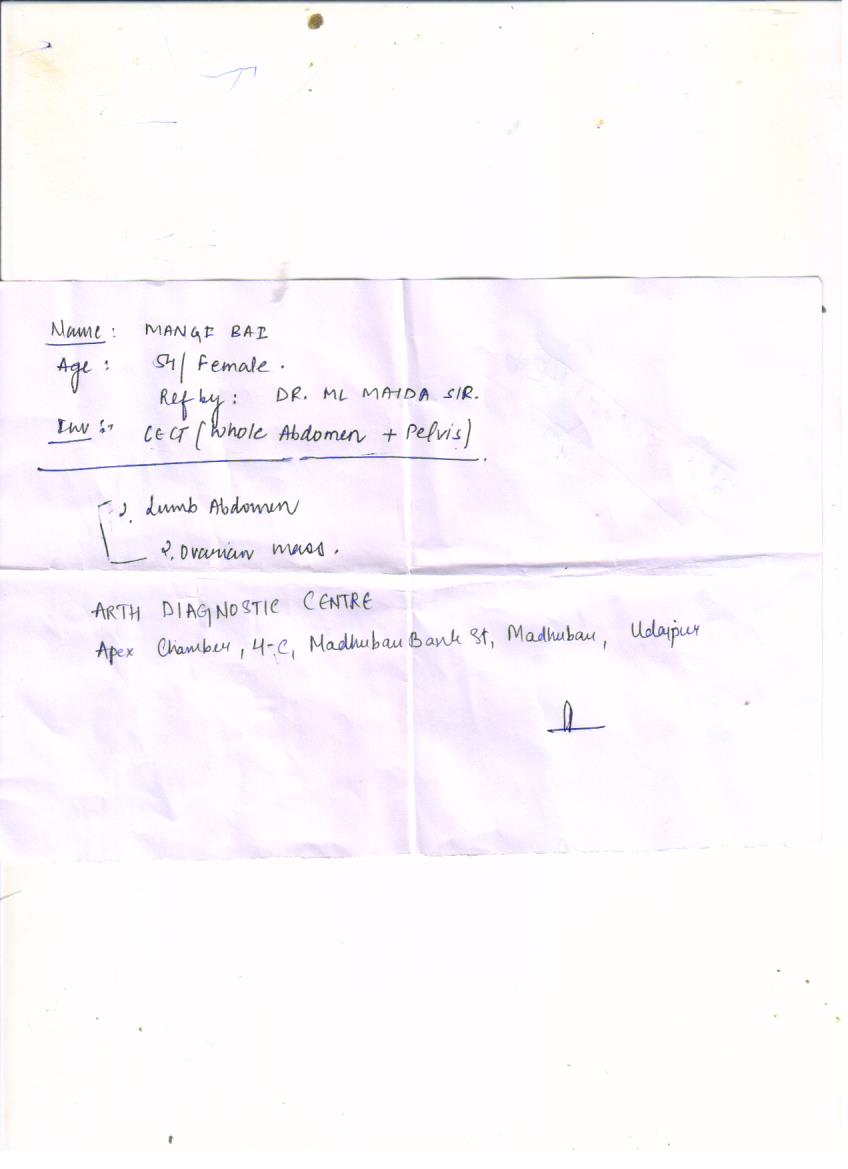 Name : MANGI BAI
Age : 54/ Female .
Ref by : DR. ML MAIDA SIR.
Inv :- CECT ( Whole Abdomen + Pelvis)
1. Lumb Abdomen
2. Ovarian mass .
ARTH DIAGNOSTIC CENTRE
Apex Chamber, 4-C, Madhuban Bank St, Madhuban, Udaipur